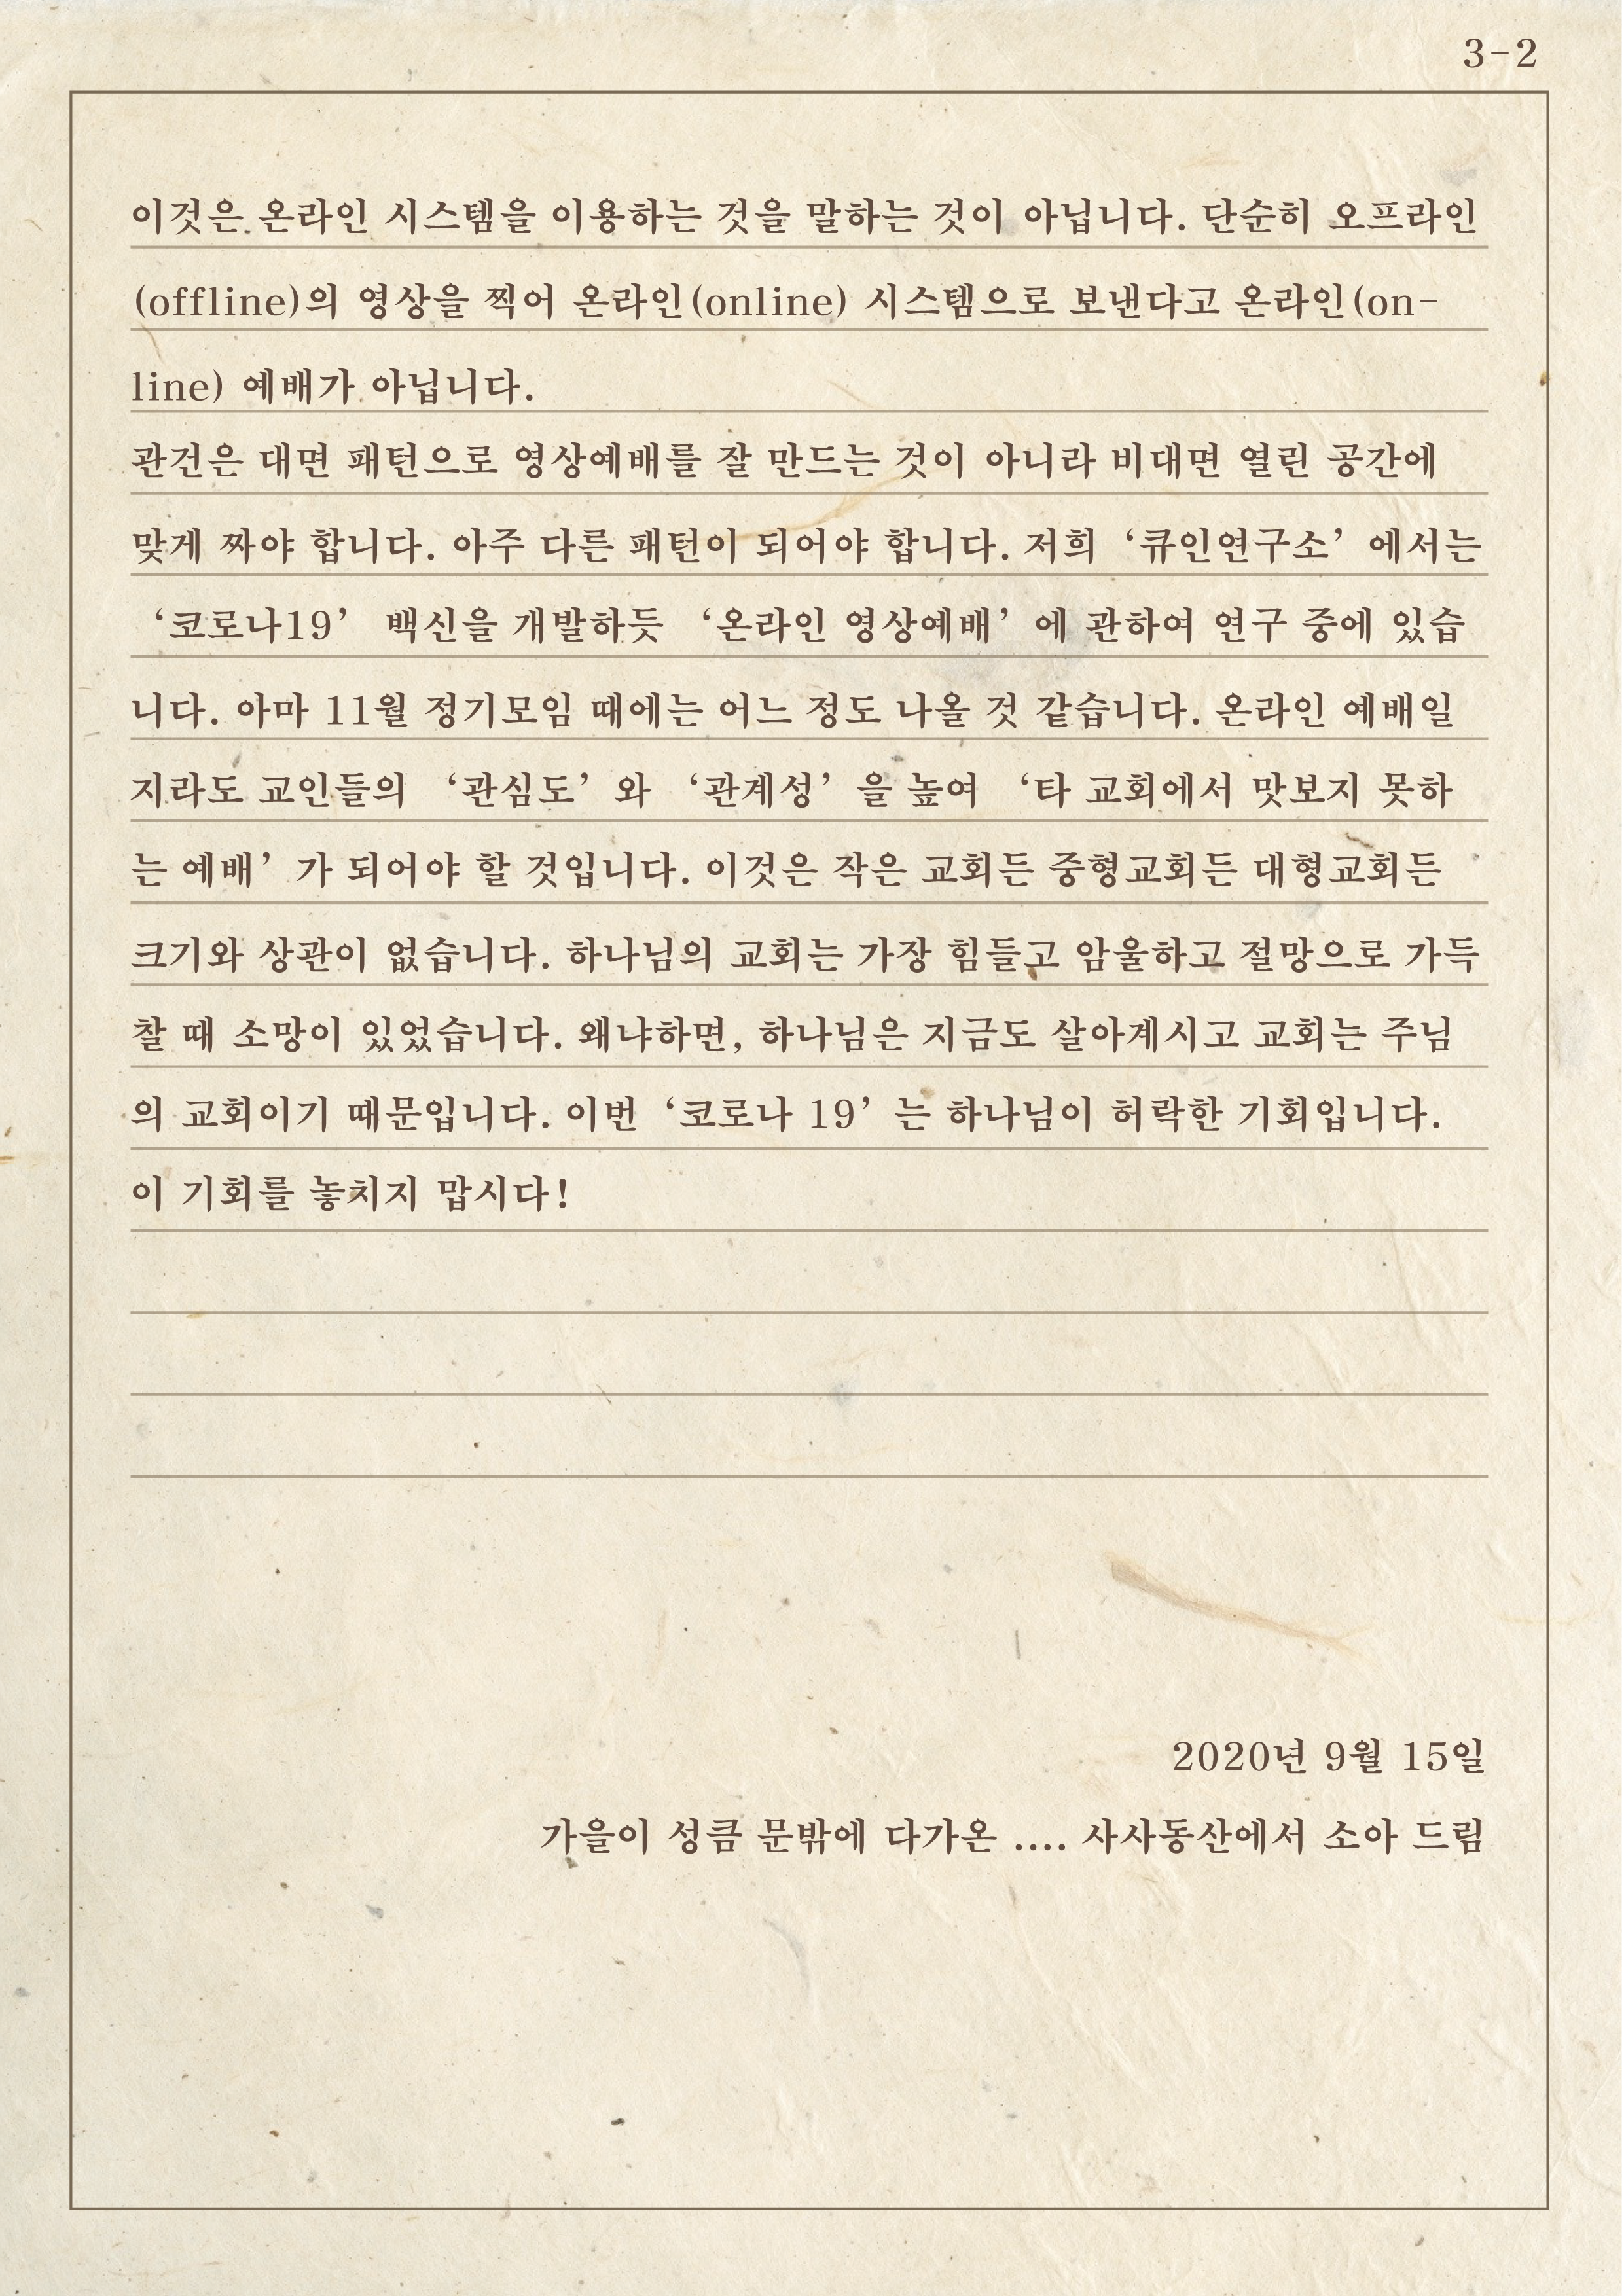 3-2
이것은 온라인 시스템을 이용하는 것을 말하는 것이 아닙니다. 단순히 오프라인
(offline)의 영상을 찍어 온라인(online) 시스템으로 보낸다고 온라인(on-
line) 예배가 아닙니다.
관건은 대면 패턴으로 영상예배를 잘 만드는 것이 아니라 비대면 열린 공간에
맞게 짜야 합니다. 아주 다른 패턴이 되어야 합니다. 저희 ‘큐인연구소’ 에서는
‘코로나19’ 백신을 개발하듯 ‘온라인 영상예배’ 에 관하여 연구 중에 있습
니다. 아마 11월 정기모임 때에는 어느 정도 나올 것 같습니다. 온라인 예배일
지라도 교인들의 ‘관심도’ 와 ‘관계성’ 을 높여 ‘타 교회에서 맛보지 못하
는 예배’ 가 되어야 할 것입니다. 이것은 작은 교회든 중형교회든 대형교회든
크기와 상관이 없습니다. 하나님의 교회는 가장 힘들고 암울하고 절망으로 가득
찰 때 소망이 있었습니다. 왜냐하면, 하나님은 지금도 살아계시고 교회는 주님
의 교회이기 때문입니다. 이번 ‘코로나 19’ 는 하나님이 허락한 기회입니다.
이 기회를 놓치지 맙시다!
2020년 9월 15일
가을이 성큼 문밖에 다가온 .... 사사동산에서 소아 드림